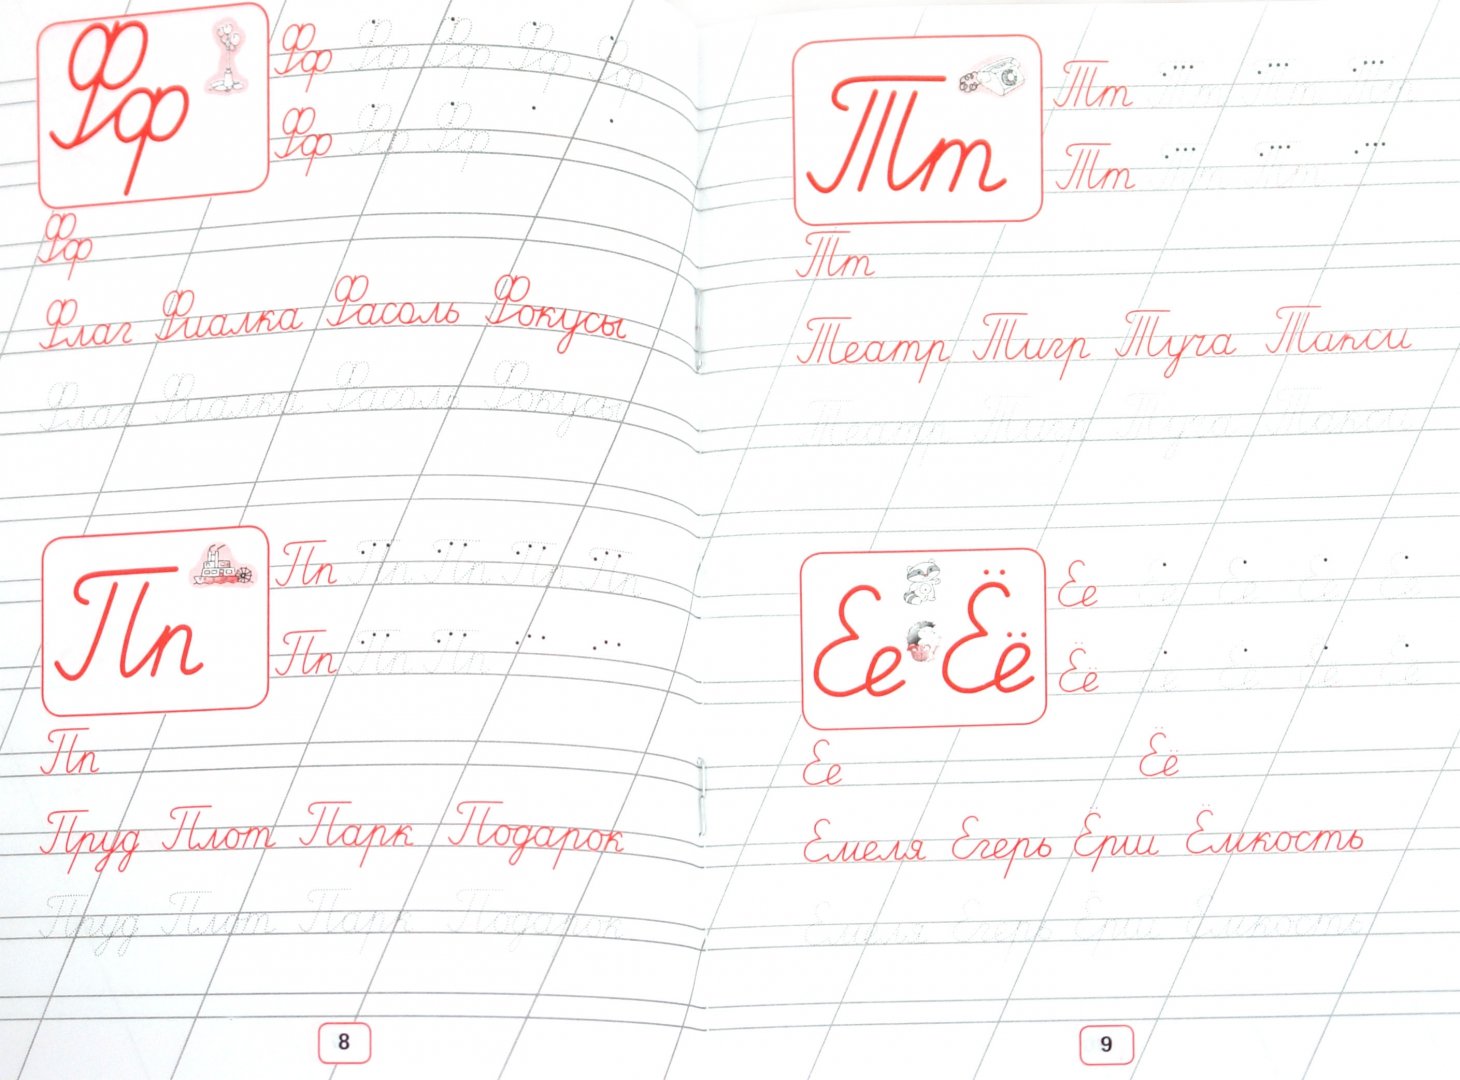 Фф Фф Фф Фф Фф Фф
Фф Фф Фф
Фф
Флаг Фиалка Фасоль Фокусы
Флаг Фиалка Фасоль Фокусы
Пп Пп Пп Пп Пп Пп
Пп Пп Пп
Пп
Пруд Плот Парк Подарок
Пруд Плот Парк Подарок
8
Тт Тт Тт Тт Тт
Тт Тт Тт
Тт
Театр Тигр Туча Такси
Театр Тигр Туча Такси
Ее Ёё Ее Ее Ее Ее Ее
Ёё Ёё Ёё Ёё Ёё
Ее Ёё
Емеля Егерь Ёрш Ёмкость
Емеля Егерь Ёрш Ёмкость
9